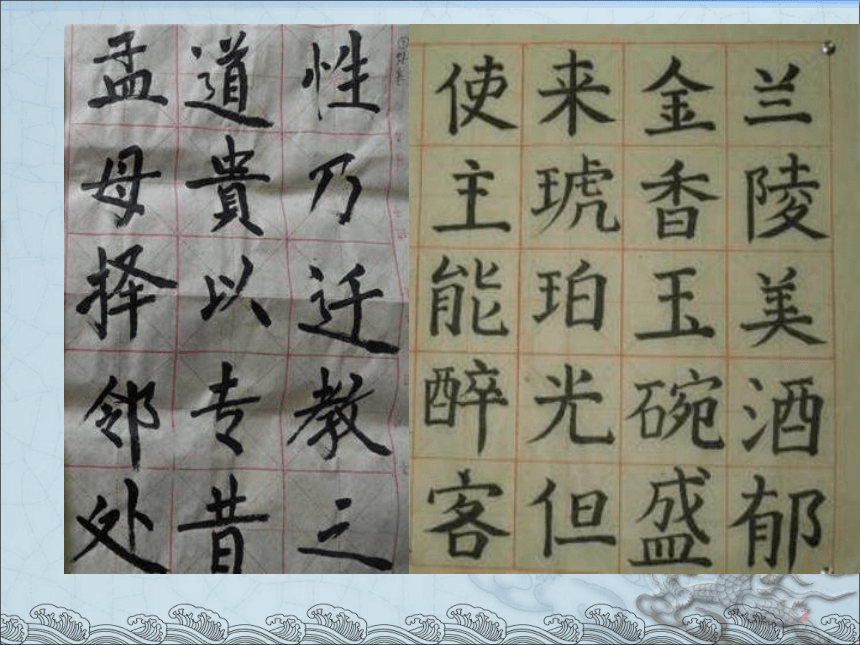 性乃迁教之
道貴以专昔
孟母择邻处
兰陵美酒郁
金香玉碗盛
来琥珀光但
使主能醉客
2